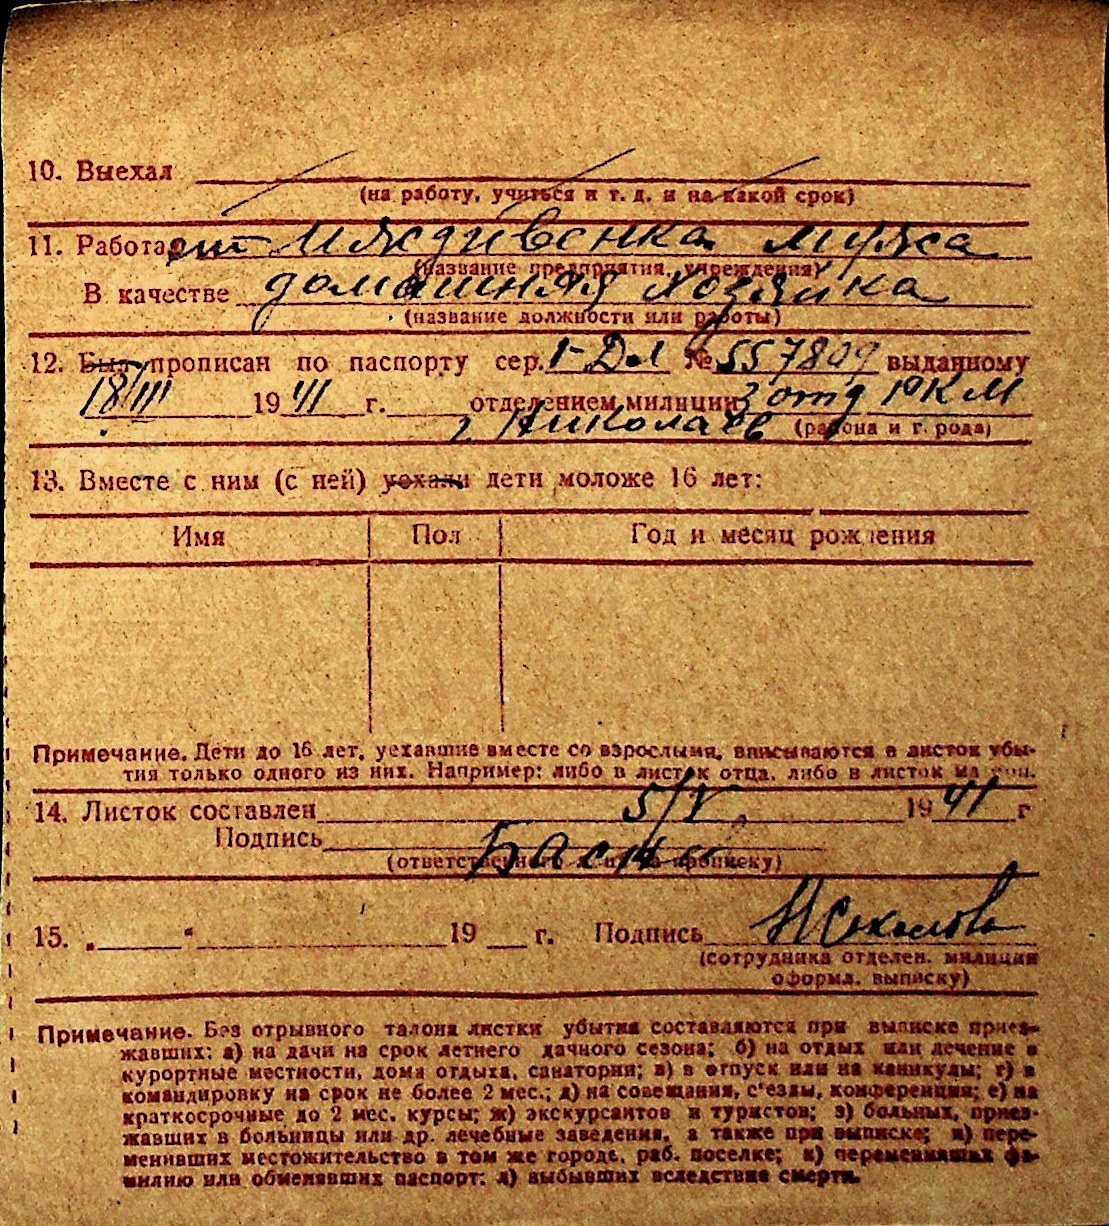 10. Выехал
(на работу, учиться и т. д. и на какой срок)
11. Работа ит Иждивенка мужа
(название предприятия, учреждения)
В качестве домашняя хозяйка
(название должности или работы)
12. Был прописан по паспорту сер. №557809 выданному
18/III 1941 г. отделением милиции 3 отд РКМ
г. Николаев (района и города)
13. Вместе с ним (с ней) уехали дети моложе 16 лет:
Имя Пол Год и месяц рождения
Примечание. Дети до 16 лет, уехавшие вместе со взрослыми, вписываются в листок убы-
тия только одного из них. Например: либо в листок отца, либо в листок матери.
14. Листок составлен 5/V 1941 г
Подпись
(ответственного лица за прописку)
15. „ " 19 г. Подпись Соколова
(сотрудника отделен. милиции
оформл. выписку)
Примечание. Без отрывного талона листки убытия составляются при выписке приез-
жавших: а) на дачи на срок летнего дачного сезона; б) на отдых или лечение в
курортные местности, дома отдыха, санатории; в) в отпуск или на каникулы; г) в
командировку на срок не более 2 мес.; д) на совещания, с'езды, конференции; е) на
краткосрочные до 2 мес. курсы; ж) экскурсантов и туристов; з) больных, приез-
жавших в больницы или др. лечебные заведения, а также при выписке; и) пере-
менивших местожительство в том же городе, раб. поселке; к) переменивших фа-
милию или обменявших паспорт; л) выбывших вследствие смерти.